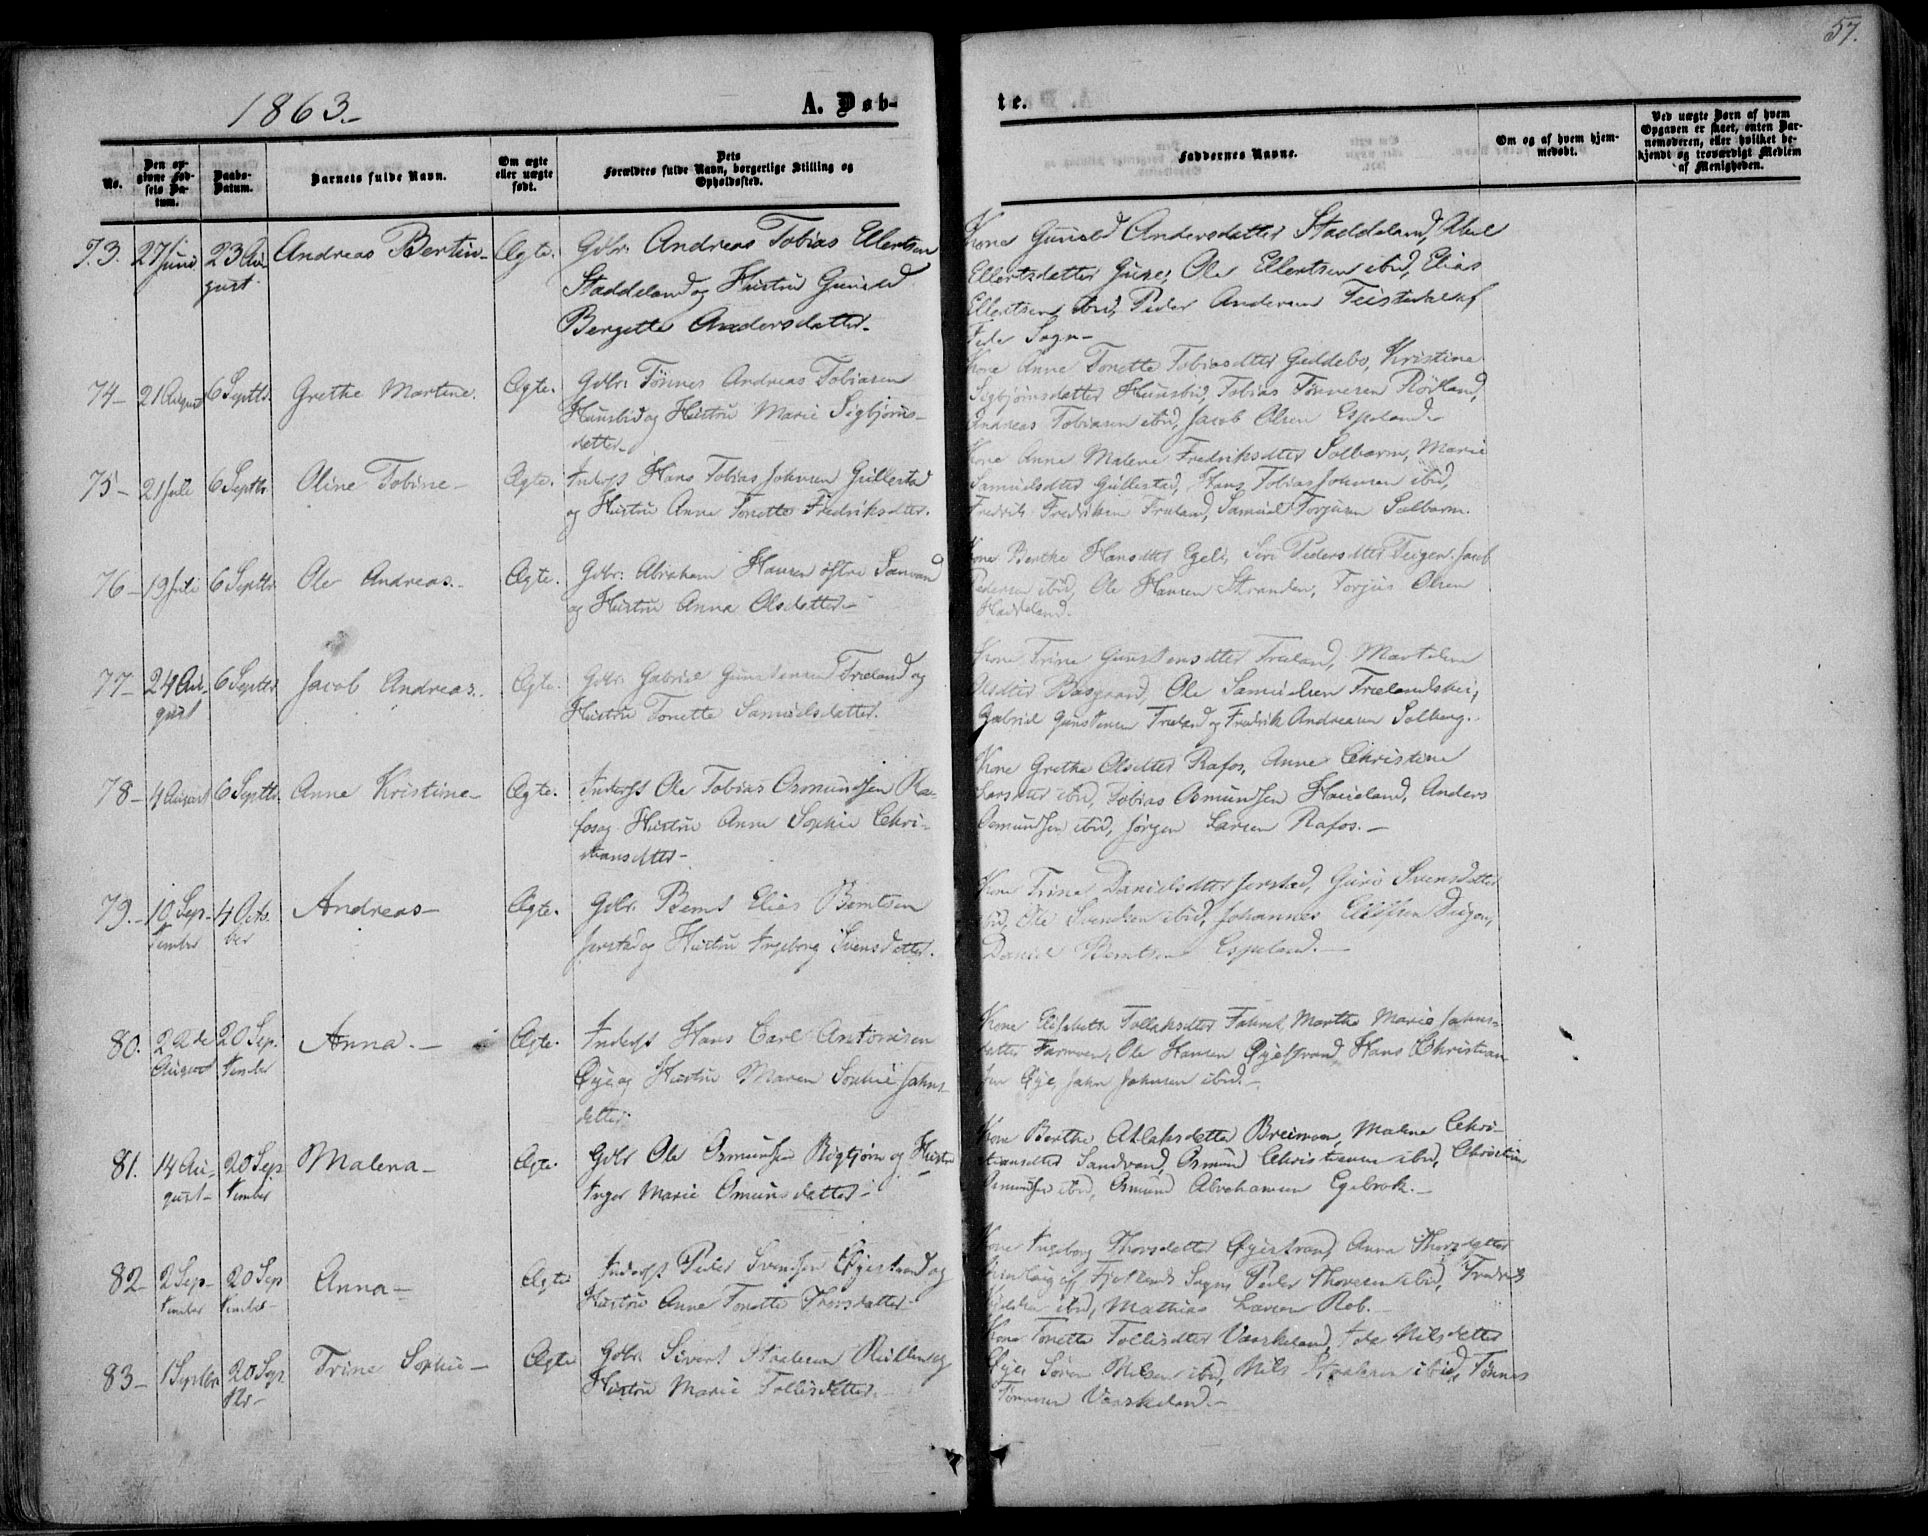 57.
1863.-
A. Døb-
te.
No.
Den op-
givne Fød-
sels Da-
tum.
Daabs-
Datum.
Barnets fulde Navn.
Om ægte
eller uægte
født.
Dets
Forældres fulde Navn, borgerlige Stilling og
Opholdssted.
Faddernes Navne.
Om og af hvem hjem-
medøbt.
Ved uægte Børn af hvem
Opgaven er skeet, enten Bar-
nemoderen, eller hvilket be-
kjendt og troværdigt Medlem
af Menigheden.
73. 27 Juni 23 Au- Andreas Bertin- Ægte. Gdbr: Andreas Tobias Ellertsen
gust. Staddeland og Hustru Gunild
Bergette Andersdatter-
Kone Gunild Andersdatter Staddeland,
Ellertsdatter Ole Ellertsen ibid, Elias
Ellertsen ibid, Peder Andersen af
Sogn-
74- 21 August 6 Septbr. Grethe Martine. Ægte. Gdbr: Tønnes Andreas Tobiasen
Hunsbid og Hustru Marie Sigbjørns-
datter-
Kone Anne Tonette Tobiasdtter Geddebo, Kristine
Sigbjørnsdatter Hunsbid, Tobias Tønnesen
Andreas Tobiasen ibid, Jacob Olsen Espeland-
75- 21 Juli 6 Septbr. Oline Tobine- Ægte. Inderst Hans Tobias Johnsen Gullestad
og Hustru Anne Tonette Fredriksdtter.
Kone Anne Malene Fredriksdtter Solbarm, Marie
Samuelsdtter Gullestad, Hans Tobias Johnsen ibid,
Fredrik Fredriksen Træland, Samuel Torjusen Solbarm.
76- 19 Juli 6 Septbr. Ole Andreas.- Ægte. Gdbr: Abraham Hansen østre Sanvand
og Hustru Anna Olsdatter-
Kone Berthe Hansdtter Egeli, Siri Pedersdtter Teigen, Jacob
Pedersen ibid, Ole Hansen Stranden, Torjus Olsen
Haddeland.
77- 24 Au- 6 Septbr. Jacob Andreas. Ægte. Gdbr: Gabriel Gunstensen Træland og
gust Hustru Tonette Samuelsdatter.
Kone Trine Gunstensdtter Træland,
Olsdtter Ole Samuelsen Trælandshei,
Gabriel Gunstensen Træland og Fredrik Andreasen Solberg.
78- 4 August 6 Septbr. Anne Kristine- Ægte. Inderst Ole Tobias Osmundsen Ra-
fos og Hustru Anne Sophie Chri-
stiansdtter-
Kone Grethe Olsdtter Rafos, Anne Christine
Larsdtter ibid, Tobias Osmundsen Haueland, Anders
Osmundsen ibid, Jørgen Larsen Rafos.-
79.- 10 Sep- 4 Octo- Andreas- Ægte. Gdbr. Bernt Elias Berntsen
tember ber Jerstad og Hustru Ingeborg Svensdatter.
Kone Trine Danielsdtter Jerstad, Guri Svensdatter
ibid, Ole Svendsen ibid, Johannes
Daniel Berntsen Espeland.-
80. 22de 20 Sep. Anna.- Ægte. Inderst Hans Carl Antonisen
August tember Øye og Hustru Maren Sophie Jahns-
datter-
Kone Elisabeth Tollaksdtter Marthe Marie Jahns-
datter Ole Hansen Øyestrand, Hans Christian-
sen Øye, Jahn Johnsen ibid.-
81. 14 Au- 20 Sep Malena- Ægte. Gdbr Ole Osmundsen og Hustru
gust- tember Inger Marie Osmunsdatter-
Kone Berthe Atlaksdatter Breimoen, Malene Chri-
stiansdtter Sandvand, Osmund Christiansen ibid, Christian
Osmundsen ibid, Osmund Abrahamsen Egebrok.-
82- 2 Sep- 20 Sep Anna- Ægte Inderst Peder Svendsen Øyestrand og
tember tember- Hustru Anne Tonette Thorsdatter-
Kone Ingeborg Thorsdatter Øyestrand, Anna Thorsdatter
af Fjotlands Sogn, Peder Thorsen ibid, Fredrik
ibid, Mathias Larsen Rob.-
83- 1 Septbr 20 Sep Trine Sophie- Ægte Gdbr: Sivert Staalesen Rullen og
tbr- Hustru Marie Tollisdatter.
Kone Tonette Tollisdtter Vaaskeland, Ida Nilsdatter
Øye, Søren Nilsen ibid, Nils Staalesen ibid, Tønnes
Tønnesen Vaaskeland.-